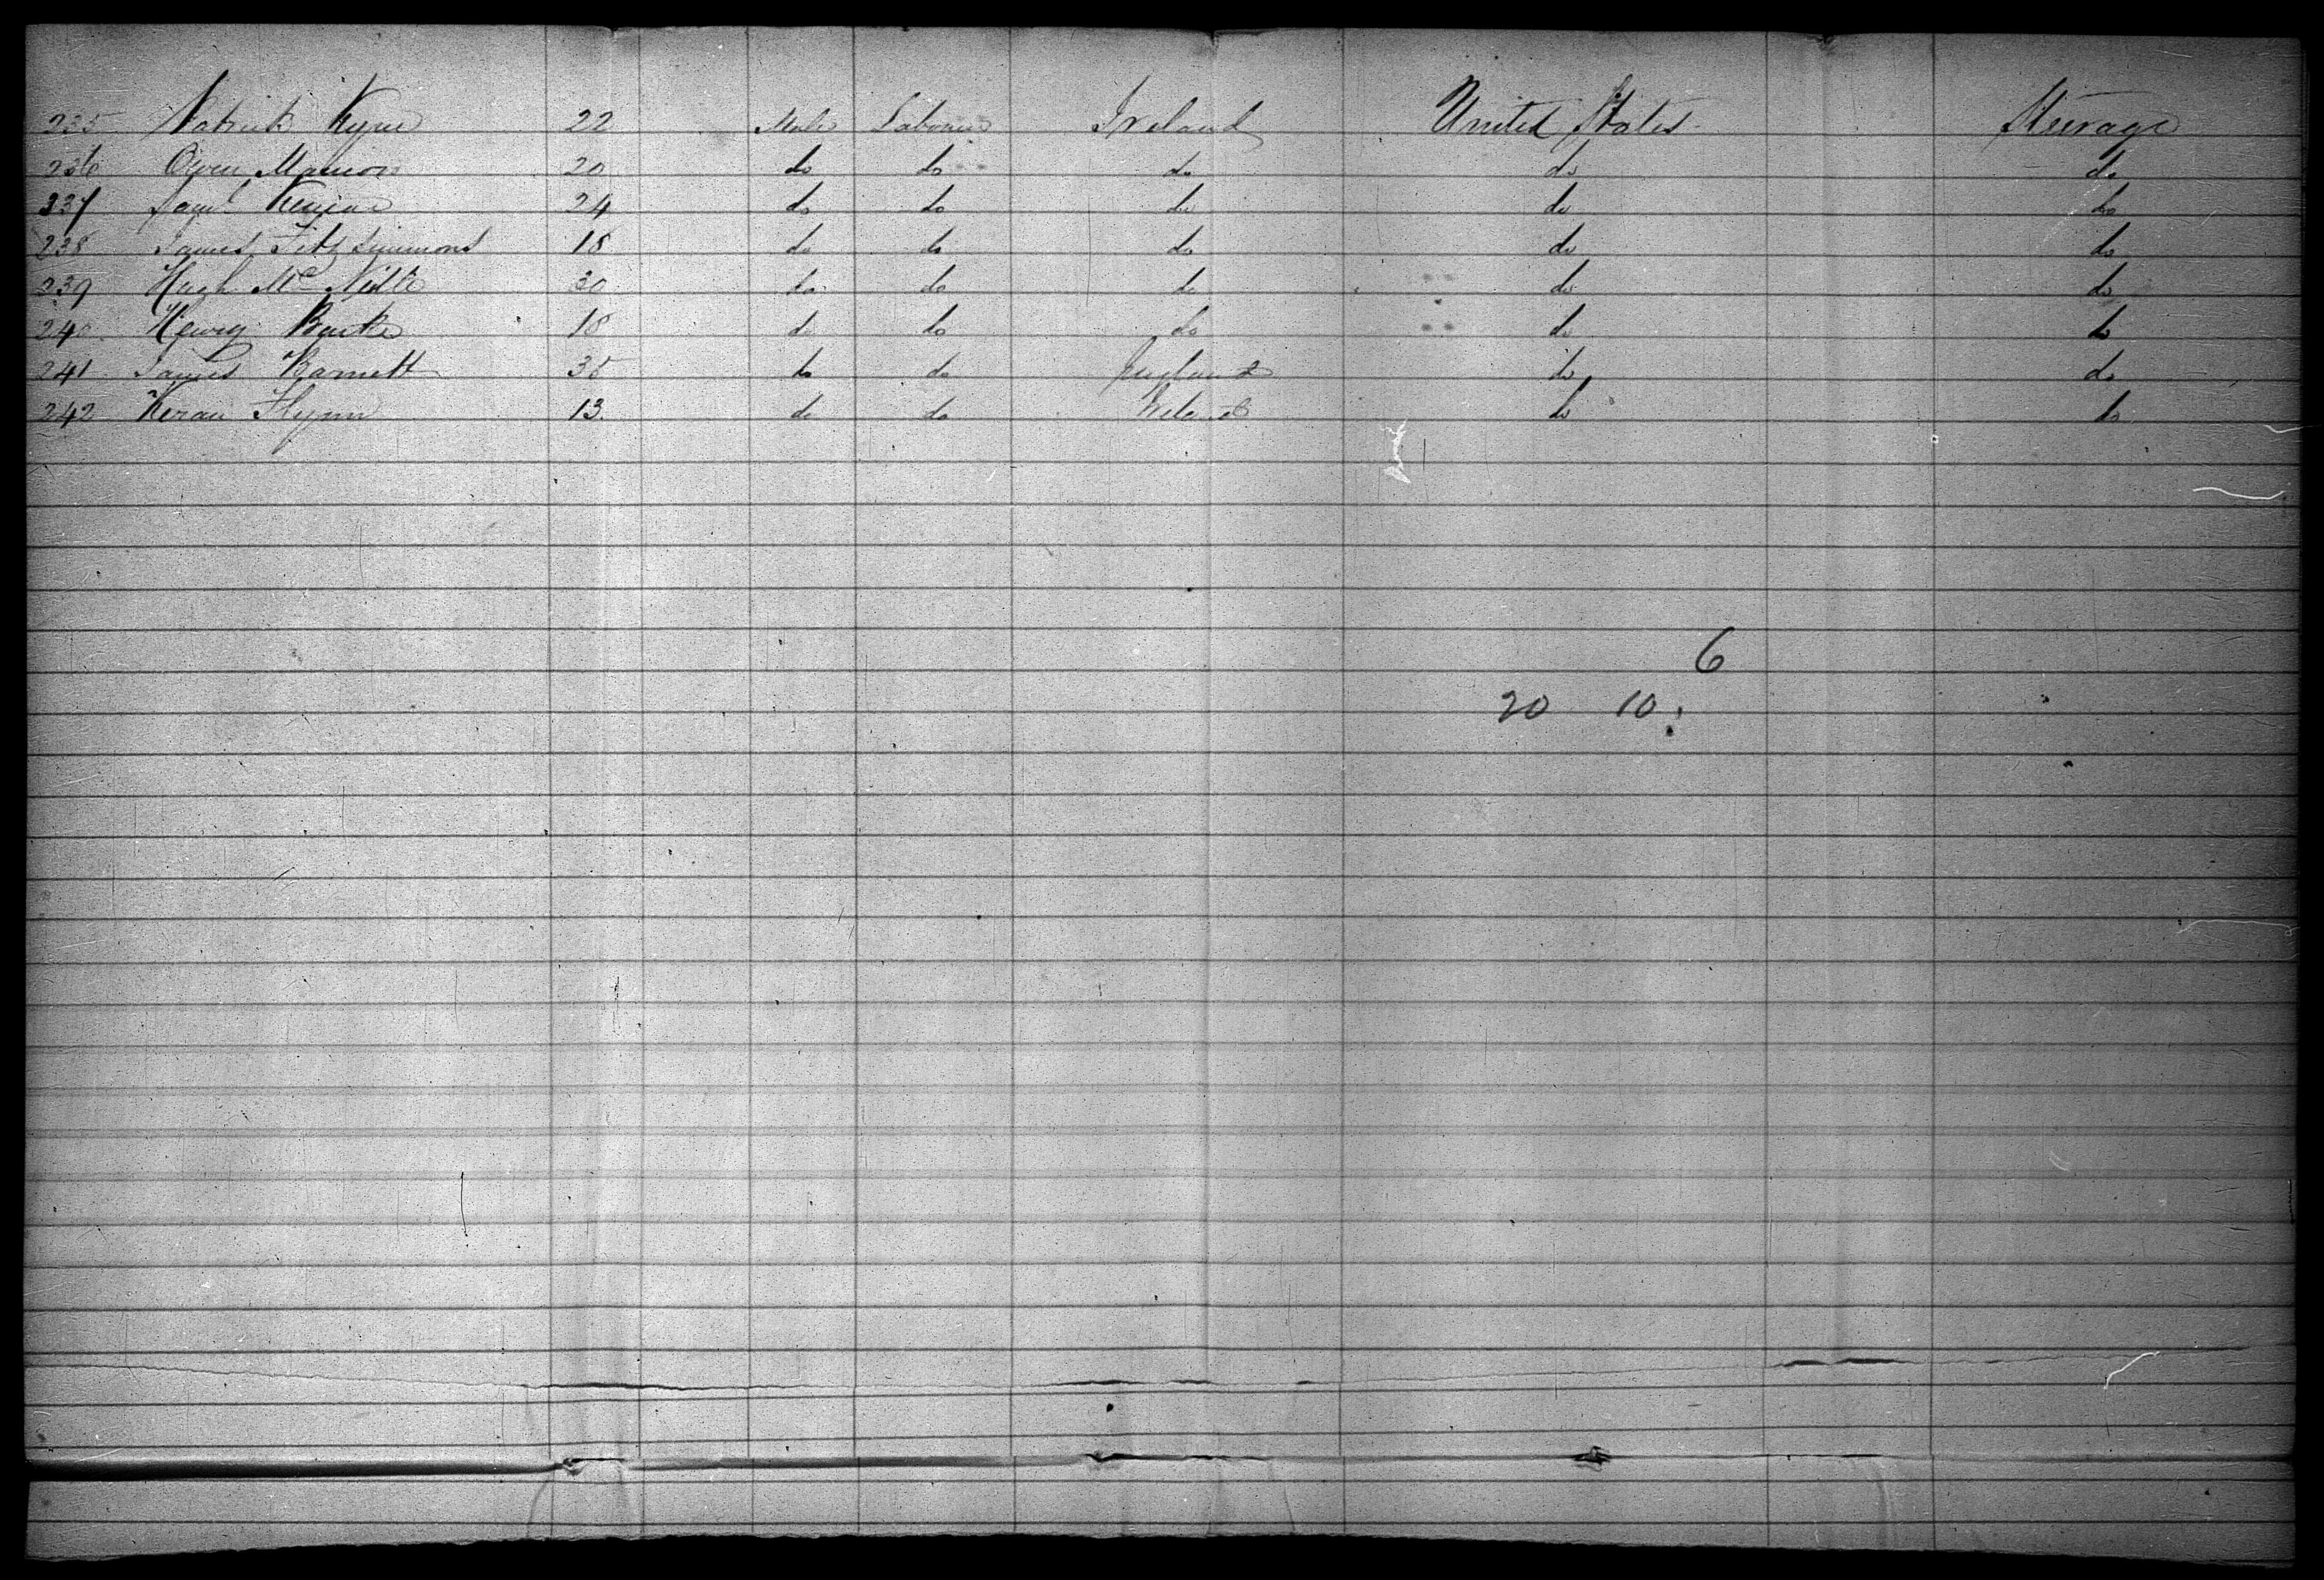 235 Patrick Kyne 22 Male Laborer Ireland United States Steerage
236 Owen Manion 20 do do do do do
237 Saml 24 do do do do do
238 James Fitzsimmons 18 do do do do do
239 Hugh Mc 30 do do do do do
240 Henry Burke 18 do do do do do
241 James Barnett 35 do do England do do
242 Keran Flynn 13. do do Ireland do do
6
20 10